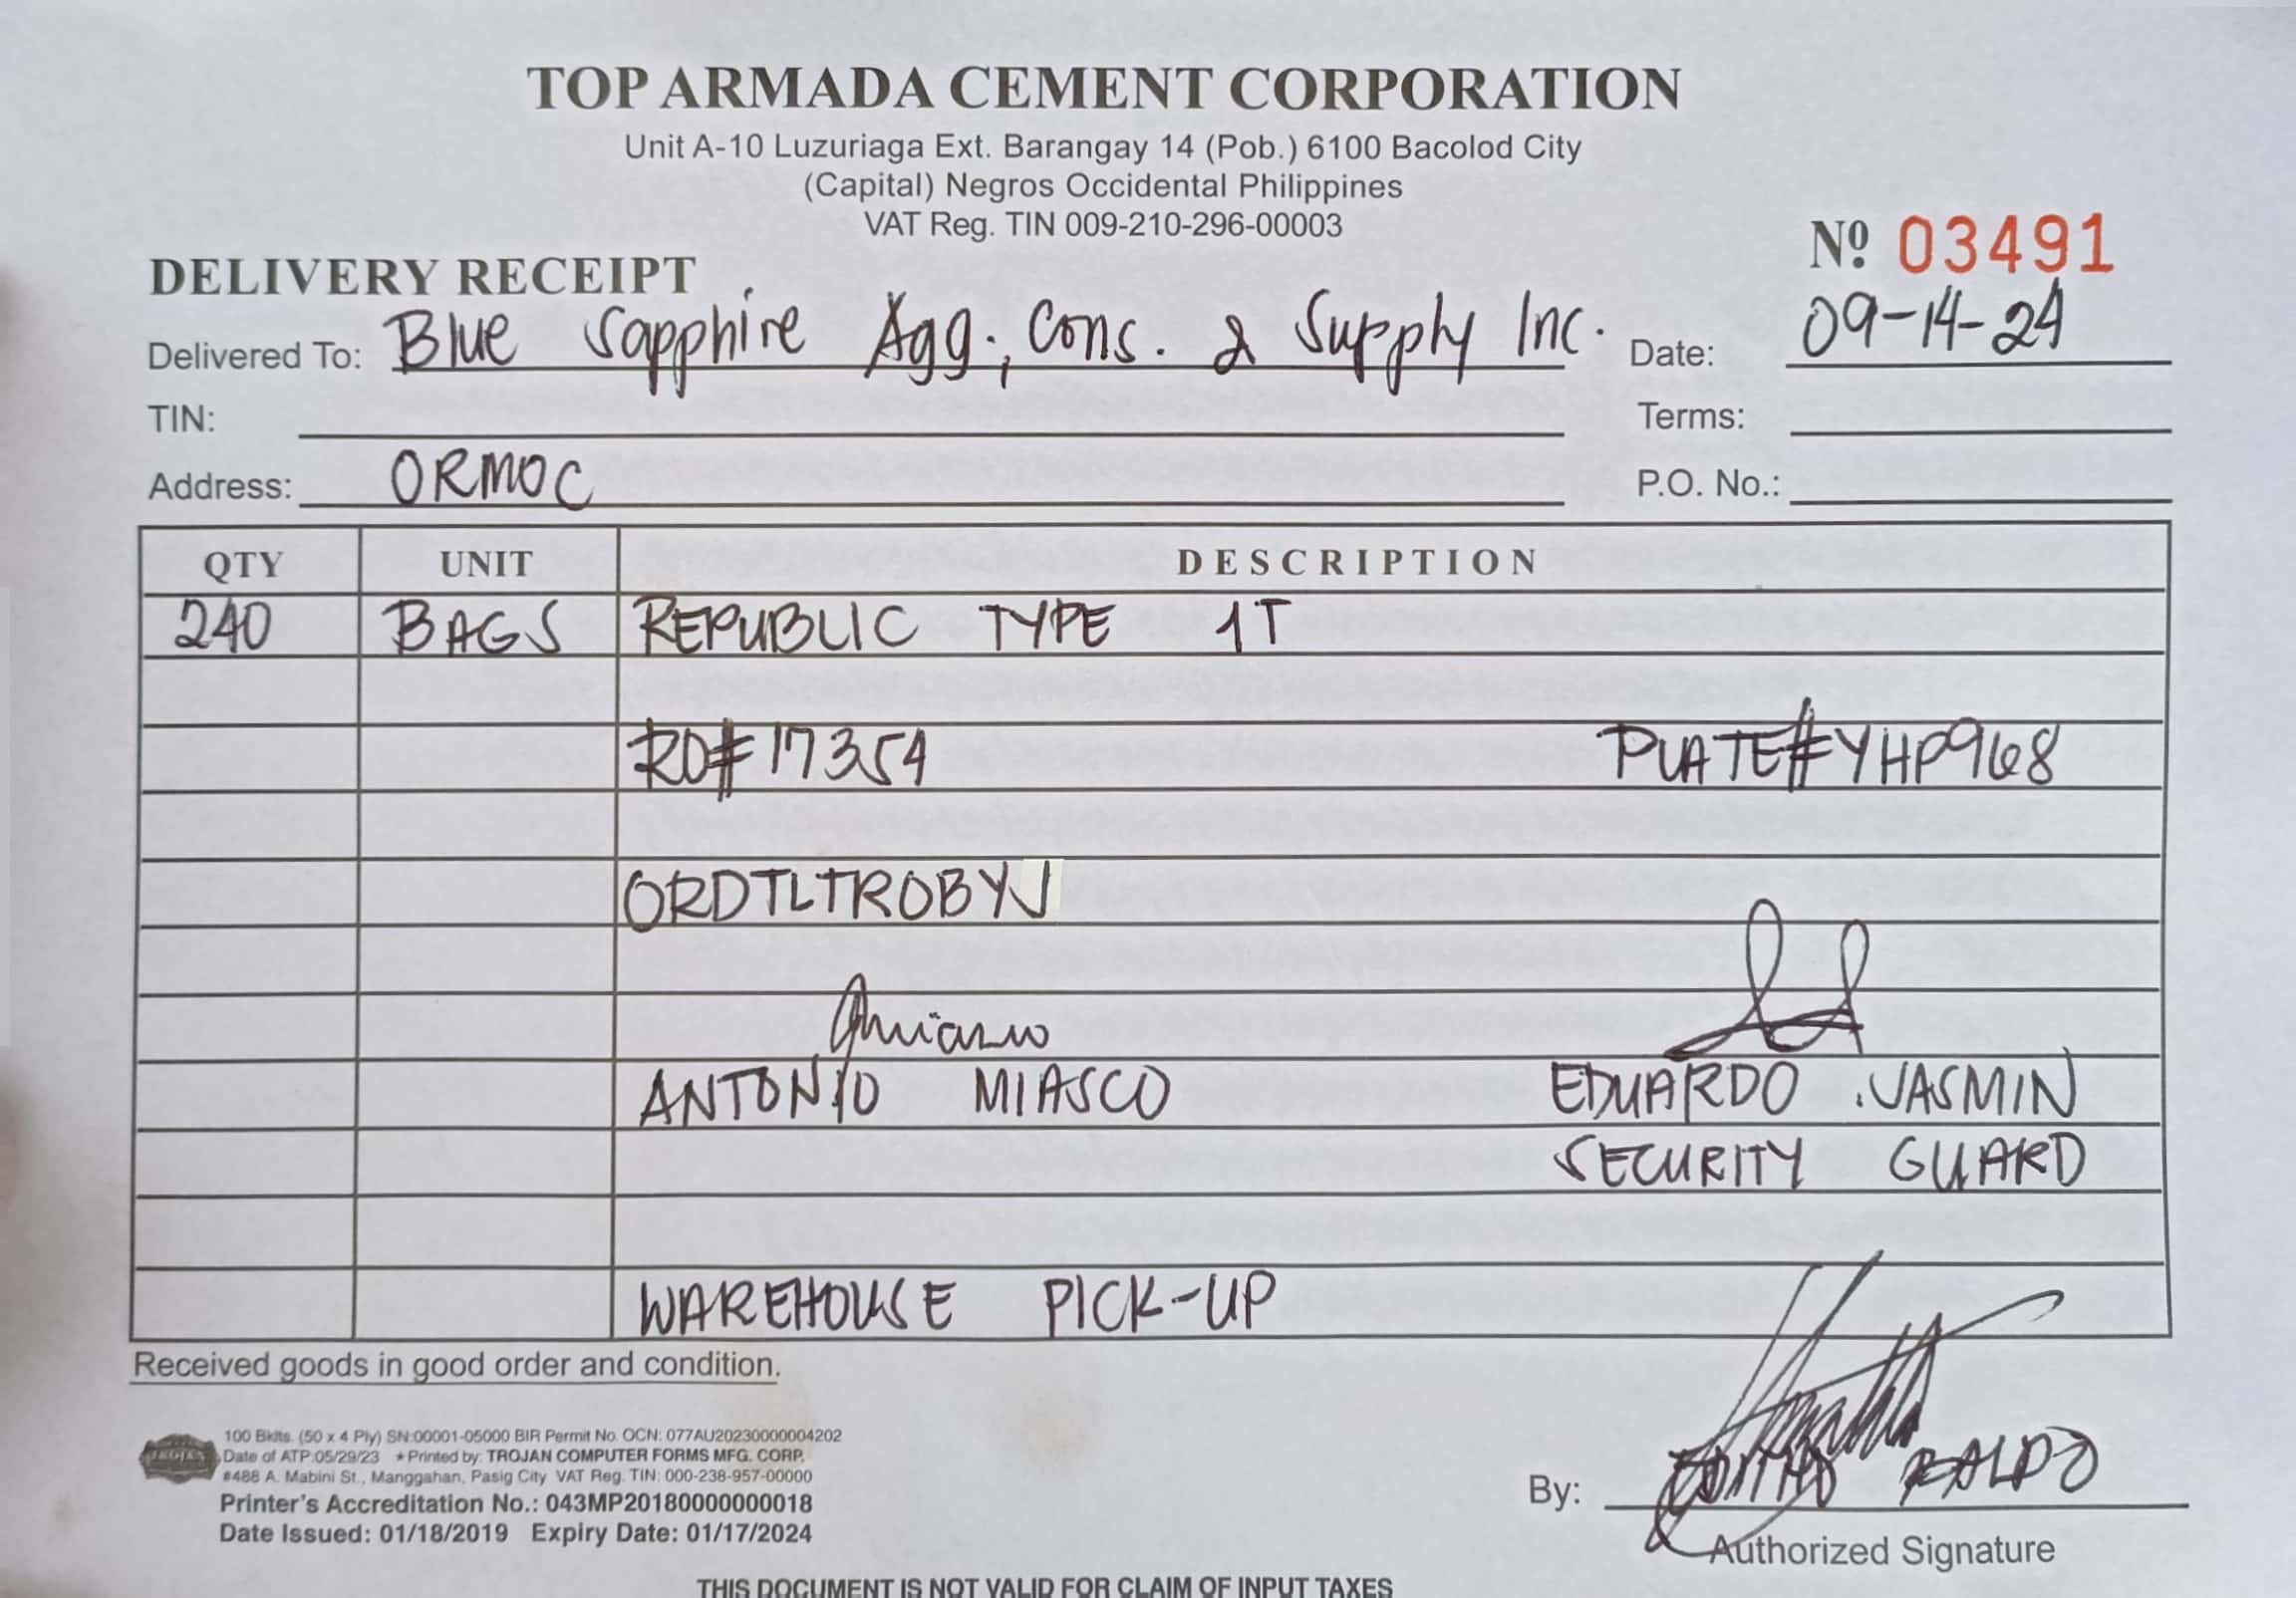 TOP ARMADA CEMENT CORPORATION
Unit A-10 Luzuriaga Ext. Barangay 14 (Pob.) 6100 Bacolod City
(Capital) Negros Occidental Philippines
VAT Reg. TIN 009-210-296-00003
Nº 03491
DELIVERY RECEIPT
Delivered To: Blue Sapphire Agg., Cons. & Supply Inc. Date: 09-14-24
TIN: Terms:
Address: ORMOC P.O. No.:
QTY UNIT DESCRIPTION
240 BAGS REPUBLIC TYPE 1T
RO#17354 PLATE#YHP968
ORDTLTROBYN
ANTONIO MIASCO EDUARDO JASMIN
SECURITY GUARD
WAREHOUSE PICK-UP
Received goods in good order and condition.
100 Bklts. (50 x 4 Ply) SN:00001-05000 BIR Permit No. OCN: 077AU20230000004202
Date of ATP:05/29/23 * Printed by: TROJAN COMPUTER FORMS MFG. CORP.
#488 A. Mabini St., Manggahan, Pasig City VAT Reg. TIN: 000-238-957-00000
Printer's Accreditation No.: 043MP20180000000018
Date Issued: 01/18/2019 Expiry Date: 01/17/2024
By: BALDO
Authorized Signature
THIS DOCUMENT IS NOT VALID FOR CLAIM OF INPUT TAXES